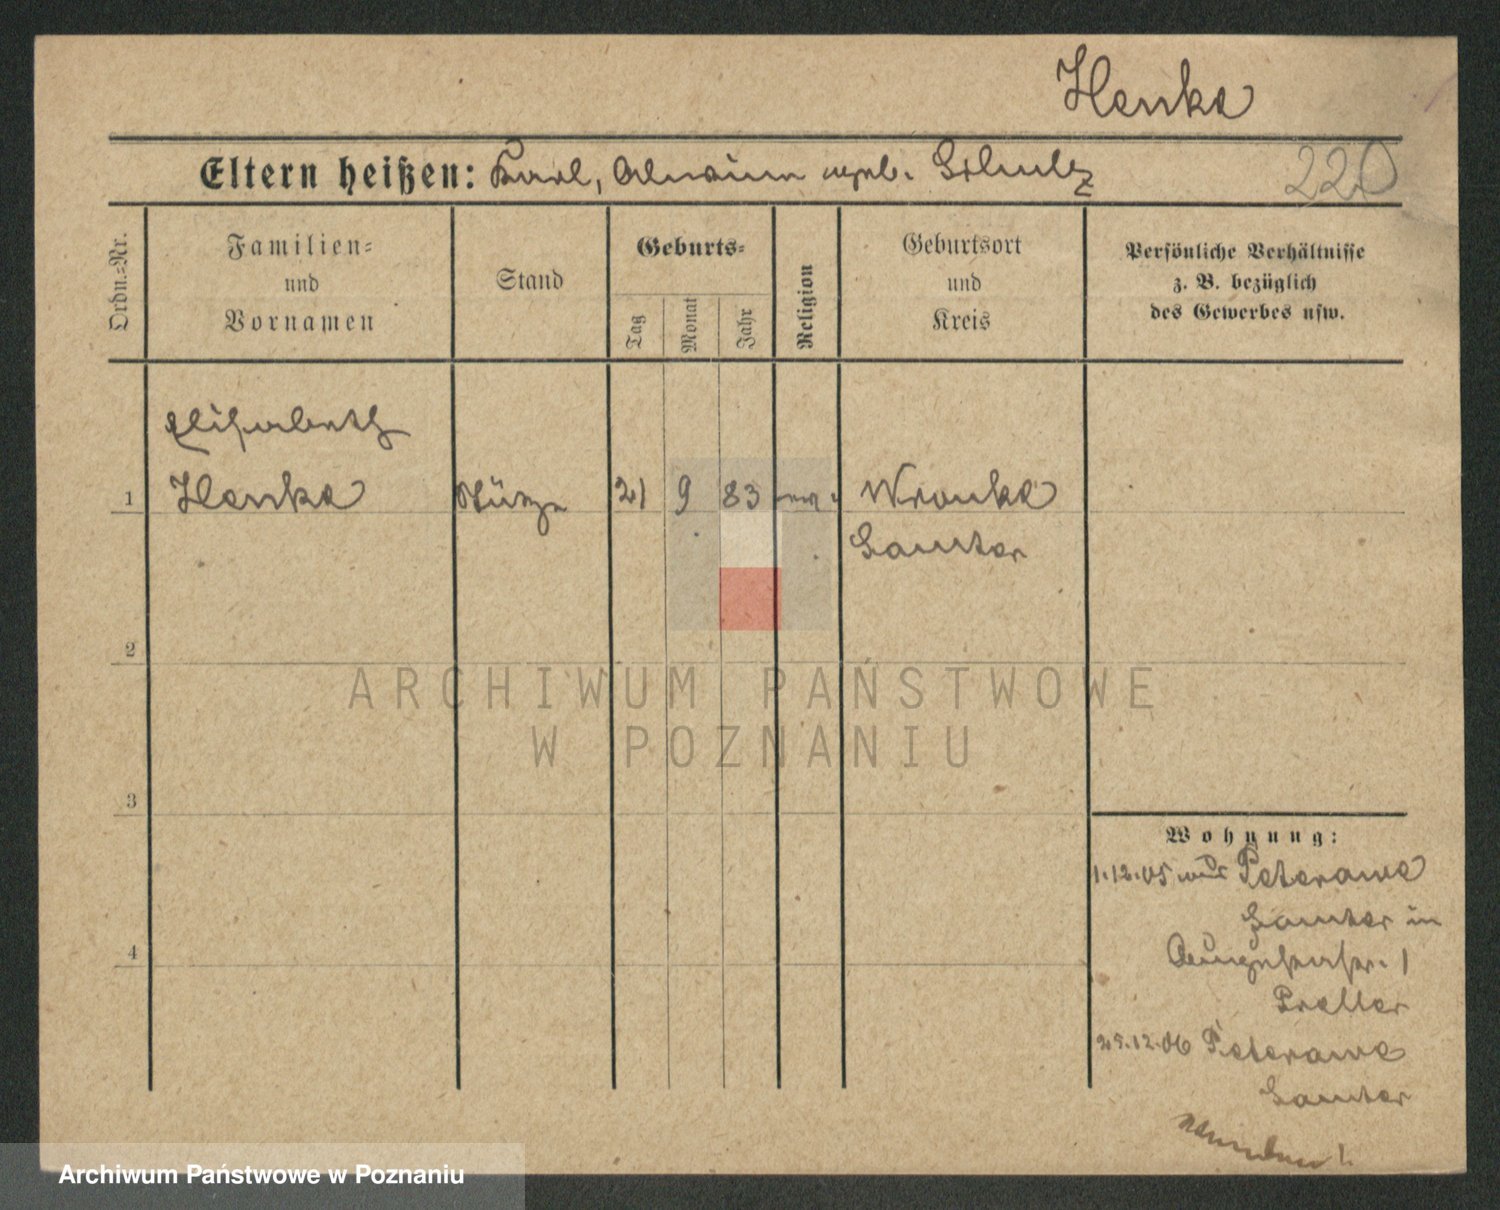 Henke
220
Eltern heißen: Karl, Alwine geb. Schulz
Ordn.-Nr.
Familien-
und
Vornamen
Stand
Geburts-
Tag
Monat
Jahr
Religion
Geburtsort
und
Kreis
Persönliche Verhältnisse
z. B. bezüglich
des Gewerbes usw.
Elisabeth
1 Henke Stütze 21 9 83 Wronke
Samter
2
3
4
Wohnung:
1.12.05 aus Peterawe
Samter in
Augustastr. 1
Preller
29.12.06 Peterawe
Samter
ARCHIWUM PAŃSTWOWE
W POZNANIU
Archiwum Państwowe w Poznaniu